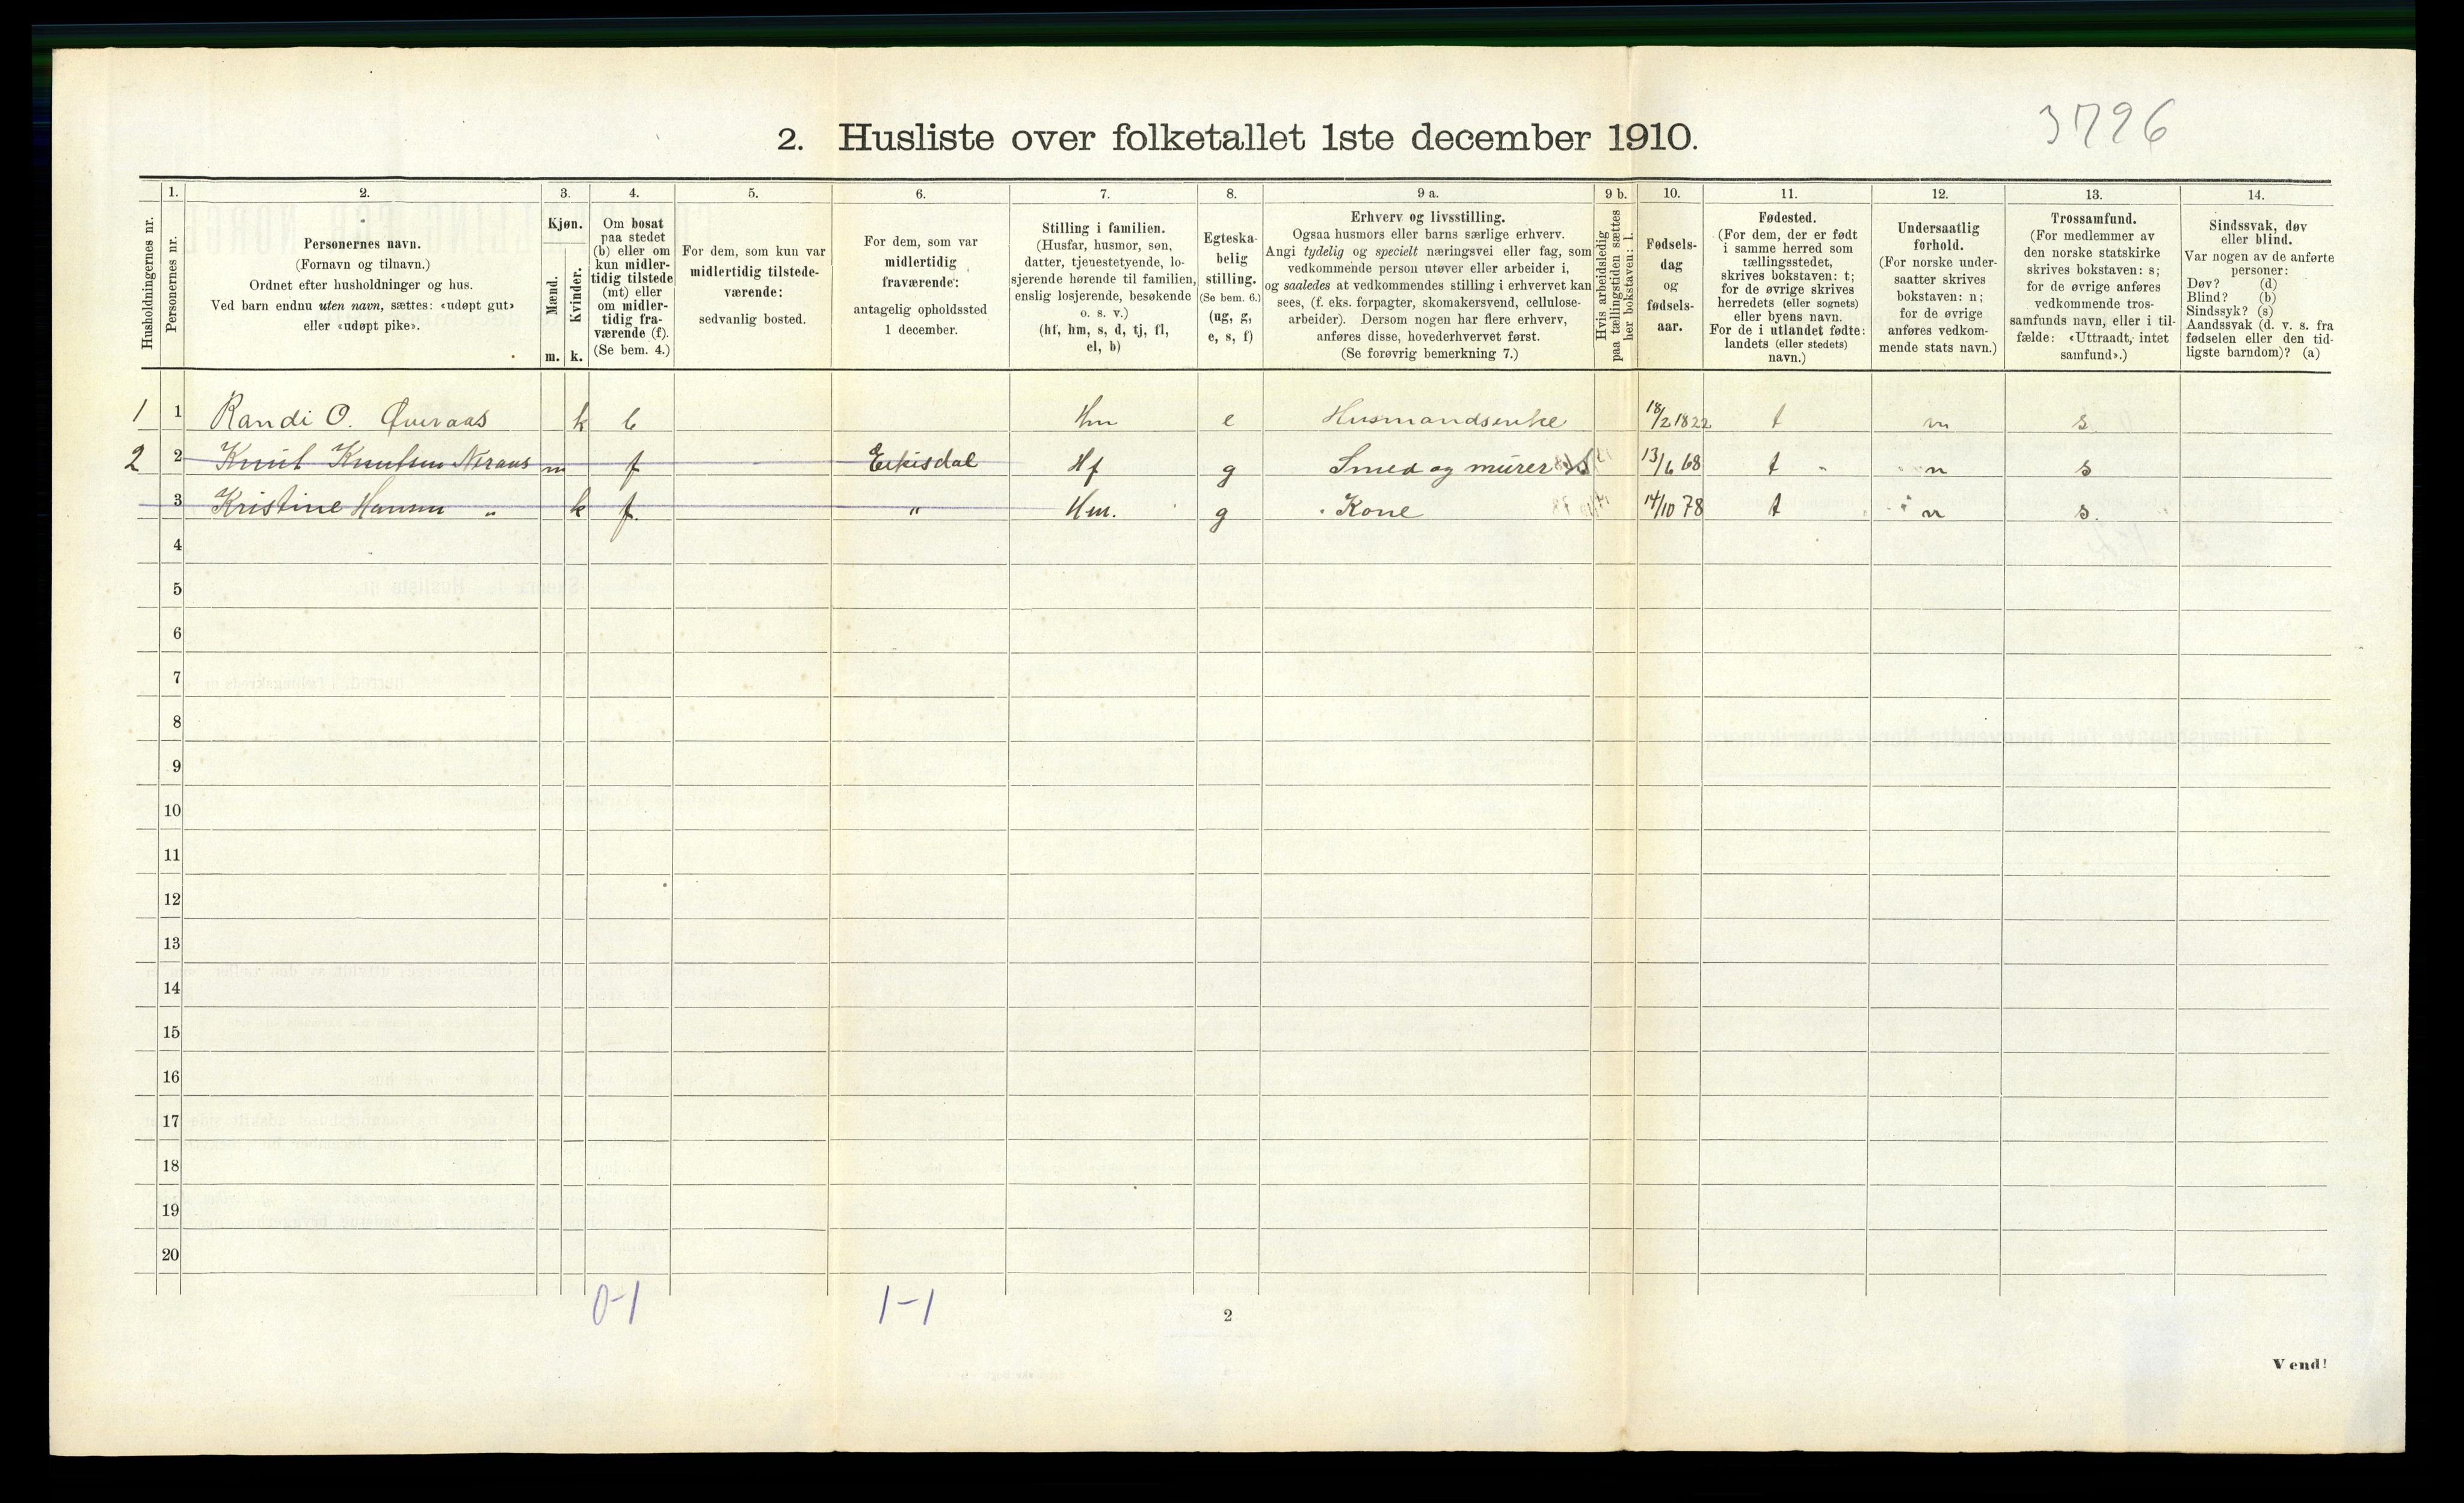 3796
2. Husliste over folketallet 1ste december 1910.
Husholdningernes nr.
1.
Personernes nr.
2.
Personernes navn.
(Fornavn og tilnavn.)
Ordnet efter husholdninger og hus.
Ved barn endnu uten navn, sættes: «udøpt gut»
eller «udøpt pike».
3.
Kjøn.
Mænd.
Kvinder.
m. k.
4.
Om bosat
paa stedet
(b) eller om
kun midler-
tidig tilstede
(mt) eller
om midler-
tidig fra-
værende (f).
(Se bem. 4.)
5.
For dem, som kun var
midlertidig tilstede-
værende:
sedvanlig bosted.
6.
For dem, som var
midlertidig
fraværende:
antagelig opholdssted
1 december.
7.
Stilling i familien.
(Husfar, husmor, søn,
datter, tjenestetyende, lo-
sjerende hørende til familien,
enslig losjerende, besøkende
o. s. v.)
(hf, hm, s, d, tj, fl,
el, b)
8.
Egteska-
belig
stilling.
(Se bem. 6.)
(ug, g,
e, s, f)
9 a.
Erhverv og livsstilling.
Ogsaa husmors eller barns særlige erhverv.
Angi tydelig og specielt næringsvei eller fag, som
vedkommende person utøver eller arbeider i,
og saaledes at vedkommendes stilling i erhvervet kan
sees, (f. eks. forpagter, skomakersvend, cellulose-
arbeider). Dersom nogen har flere erhverv,
anføres disse, hovederhvervet først.
(Se forøvrig bemerkning 7.)
9 b.
Hvis arbeidsledig
paa tællingstiden sættes
her bokstaven: l.
10.
Fødsels-
dag
og
fødsels-
aar.
11.
Fødested.
(For dem, der er født
i samme herred som
tællingsstedet,
skrives bokstaven: t;
for de øvrige skrives
herredets (eller sognets)
eller byens navn.
For de i utlandet fødte:
landets (eller stedets)
navn.)
12.
Undersaatlig
forhold.
(For norske under-
saatter skrives
bokstaven: n;
for de øvrige
anføres vedkom-
mende stats navn.)
13.
Trossamfund.
(For medlemmer av
den norske statskirke
skrives bokstaven: s;
for de øvrige anføres
vedkommende tros-
samfunds navn, eller i til-
fælde: «Uttraadt, intet
samfund».)
14.
Sindssvak, døv
eller blind.
Var nogen av de anførte
personer:
Døv? (d)
Blind? (b)
Sindssyk? (s)
Aandssvak (d. v. s. fra
fødselen eller den tid-
ligste barndom)? (a)
1 1 Randi O. Øveraas k b Hm e Husmandsenke 18/2 1822 t n s
2 2 Knut Knutsen Neraas m f Eikisdal Hf g Smed og murer 13/6 68 t n s
3 Kristine Hansen " k f. " Hm. g Kone 14/10 78 t n s.
4
5
6
7
8
9
10
11
12
13
14
15
16
17
18
19
20
0-1 1-1
2
Vend!